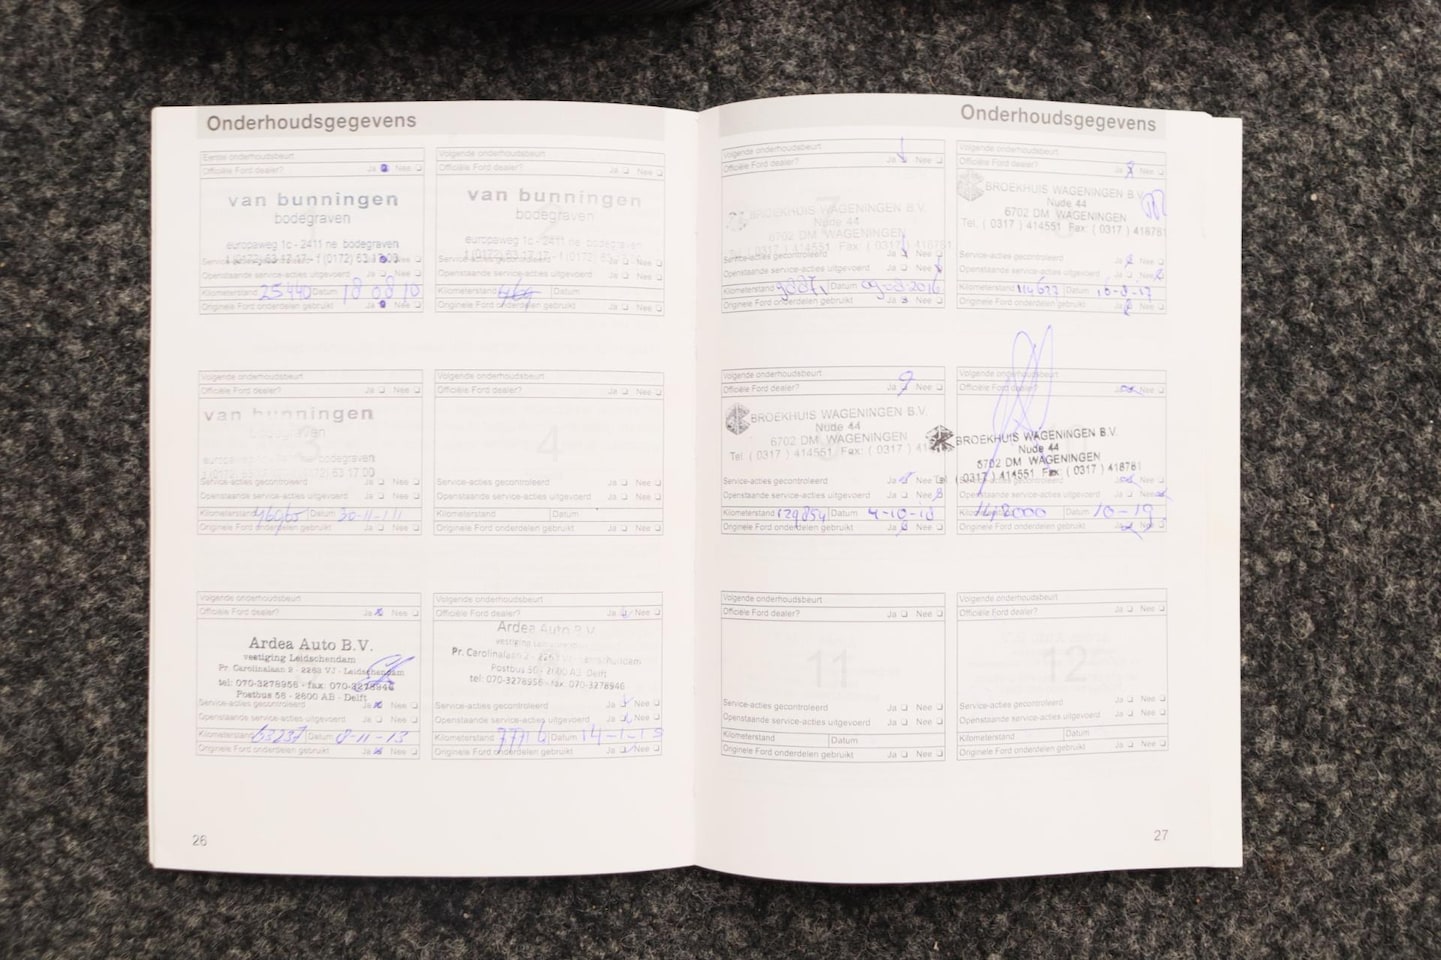 Onderhoudsgegevens
Eerste onderhoudsbeurt
Officiële Ford dealer? Ja Nee
van bunningen
bodegraven
europaweg 1c - 2411 ne bodegraven
t (0172) 63 17 17 - f (0172) 63 17 00
Service-acties gecontroleerd Ja Nee
Openstaande service-acties uitgevoerd Ja Nee
Kilometerstand 25440 Datum 18 08 10
Originele Ford onderdelen gebruikt Ja Nee
Volgende onderhoudsbeurt
Officiële Ford dealer? Ja Nee
van bunningen
bodegraven
europaweg 1c - 2411 ne bodegraven
t (0172) 63 17 17 - f (0172) 63
Openstaande service-acties uitgevoerd Ja Nee
Kilometerstand Datum
Originele Ford onderdelen gebruikt Ja Nee
Volgende onderhoudsbeurt
Officiële Ford dealer? Ja Nee
van bunningen
bodegraven
3
bodegraven
(0172) 63 17 00
Service-acties gecontroleerd Ja Nee
Openstaande service-acties uitgevoerd Ja Nee
Kilometerstand Datum 30-11-11
Originele Ford onderdelen gebruikt Ja Nee
Volgende onderhoudsbeurt
Officiële Ford dealer? Ja Nee
4
Service-acties gecontroleerd Ja Nee
Openstaande service-acties uitgevoerd Ja Nee
Kilometerstand Datum
Originele Ford onderdelen gebruikt Ja Nee
Volgende onderhoudsbeurt
Officiële Ford dealer? Ja Nee
Ardea Auto B.V.
vestiging Leidschendam
Pr. Carolinalaan 2 - 2263 VJ - Leidschendam
tel: 070-3278956 - fax: 070-3278946
Postbus 56 - 2600 AB - Delft
Service-acties gecontroleerd Ja Nee
Openstaande service-acties uitgevoerd Ja Nee
Kilometerstand 63237 Datum 8-11-13
Originele Ford onderdelen gebruikt Ja Nee
Volgende onderhoudsbeurt
Officiële Ford dealer? Ja Nee
Ardea Auto B.V.
vestiging
Pr. Carolinalaan 2 - 2263 VJ - Leidschendam
Postbus 56 - 2600 AB Delft
tel: 070-3278956 - fax: 070-3278946
Service-acties gecontroleerd Ja Nee
Openstaande service-acties uitgevoerd Ja Nee
Kilometerstand 77716 Datum 14-1-15
Originele Ford onderdelen gebruikt Ja Nee
26
Onderhoudsgegevens
Volgende onderhoudsbeurt
Officiële Ford dealer? Ja Nee
7
BROEKHUIS WAGENINGEN B.V.
Nude 44
6702 DM WAGENINGEN
Tel. ( 0317 ) 414551 Fax: ( 0317 ) 418761
Service-acties gecontroleerd Ja Nee
Openstaande service-acties uitgevoerd Ja Nee
Kilometerstand Datum
Originele Ford onderdelen gebruikt Ja Nee
Volgende onderhoudsbeurt
Officiële Ford dealer? Ja Nee
BROEKHUIS WAGENINGEN B.V.
Nude 44
6702 DM WAGENINGEN
Tel. ( 0317 ) 414551 Fax: ( 0317 ) 418761
Service-acties gecontroleerd Ja Nee
Openstaande service-acties uitgevoerd Ja Nee
Kilometerstand Datum 10-8-17
Originele Ford onderdelen gebruikt Ja Nee
Volgende onderhoudsbeurt
Officiële Ford dealer? Ja Nee
BROEKHUIS WAGENINGEN B.V.
Nude 44
6702 DM WAGENINGEN
Tel. ( 0317 ) 414551 Fax: ( 0317 ) 41
Service-acties gecontroleerd Ja Nee
Openstaande service-acties uitgevoerd Ja Nee
Kilometerstand 129854 Datum 4-10-18
Originele Ford onderdelen gebruikt Ja Nee
Volgende onderhoudsbeurt
Officiële Ford dealer? Ja Nee
BROEKHUIS WAGENINGEN B.V.
Nude 44
6702 DM WAGENINGEN
Tel. ( 0317 ) 414551 Fax: ( 0317 ) 418761
Service-acties gecontroleerd Ja Nee
Openstaande service-acties uitgevoerd Ja Nee
Kilometerstand 142000 Datum 10-19
Originele Ford onderdelen gebruikt Ja Nee
Volgende onderhoudsbeurt
Officiële Ford dealer? Ja Nee
11
Service-acties gecontroleerd Ja Nee
Openstaande service-acties uitgevoerd Ja Nee
Kilometerstand Datum
Originele Ford onderdelen gebruikt Ja Nee
Volgende onderhoudsbeurt
Officiële Ford dealer? Ja Nee
12
Service-acties gecontroleerd Ja Nee
Openstaande service-acties uitgevoerd Ja Nee
Kilometerstand Datum
Originele Ford onderdelen gebruikt Ja Nee
27